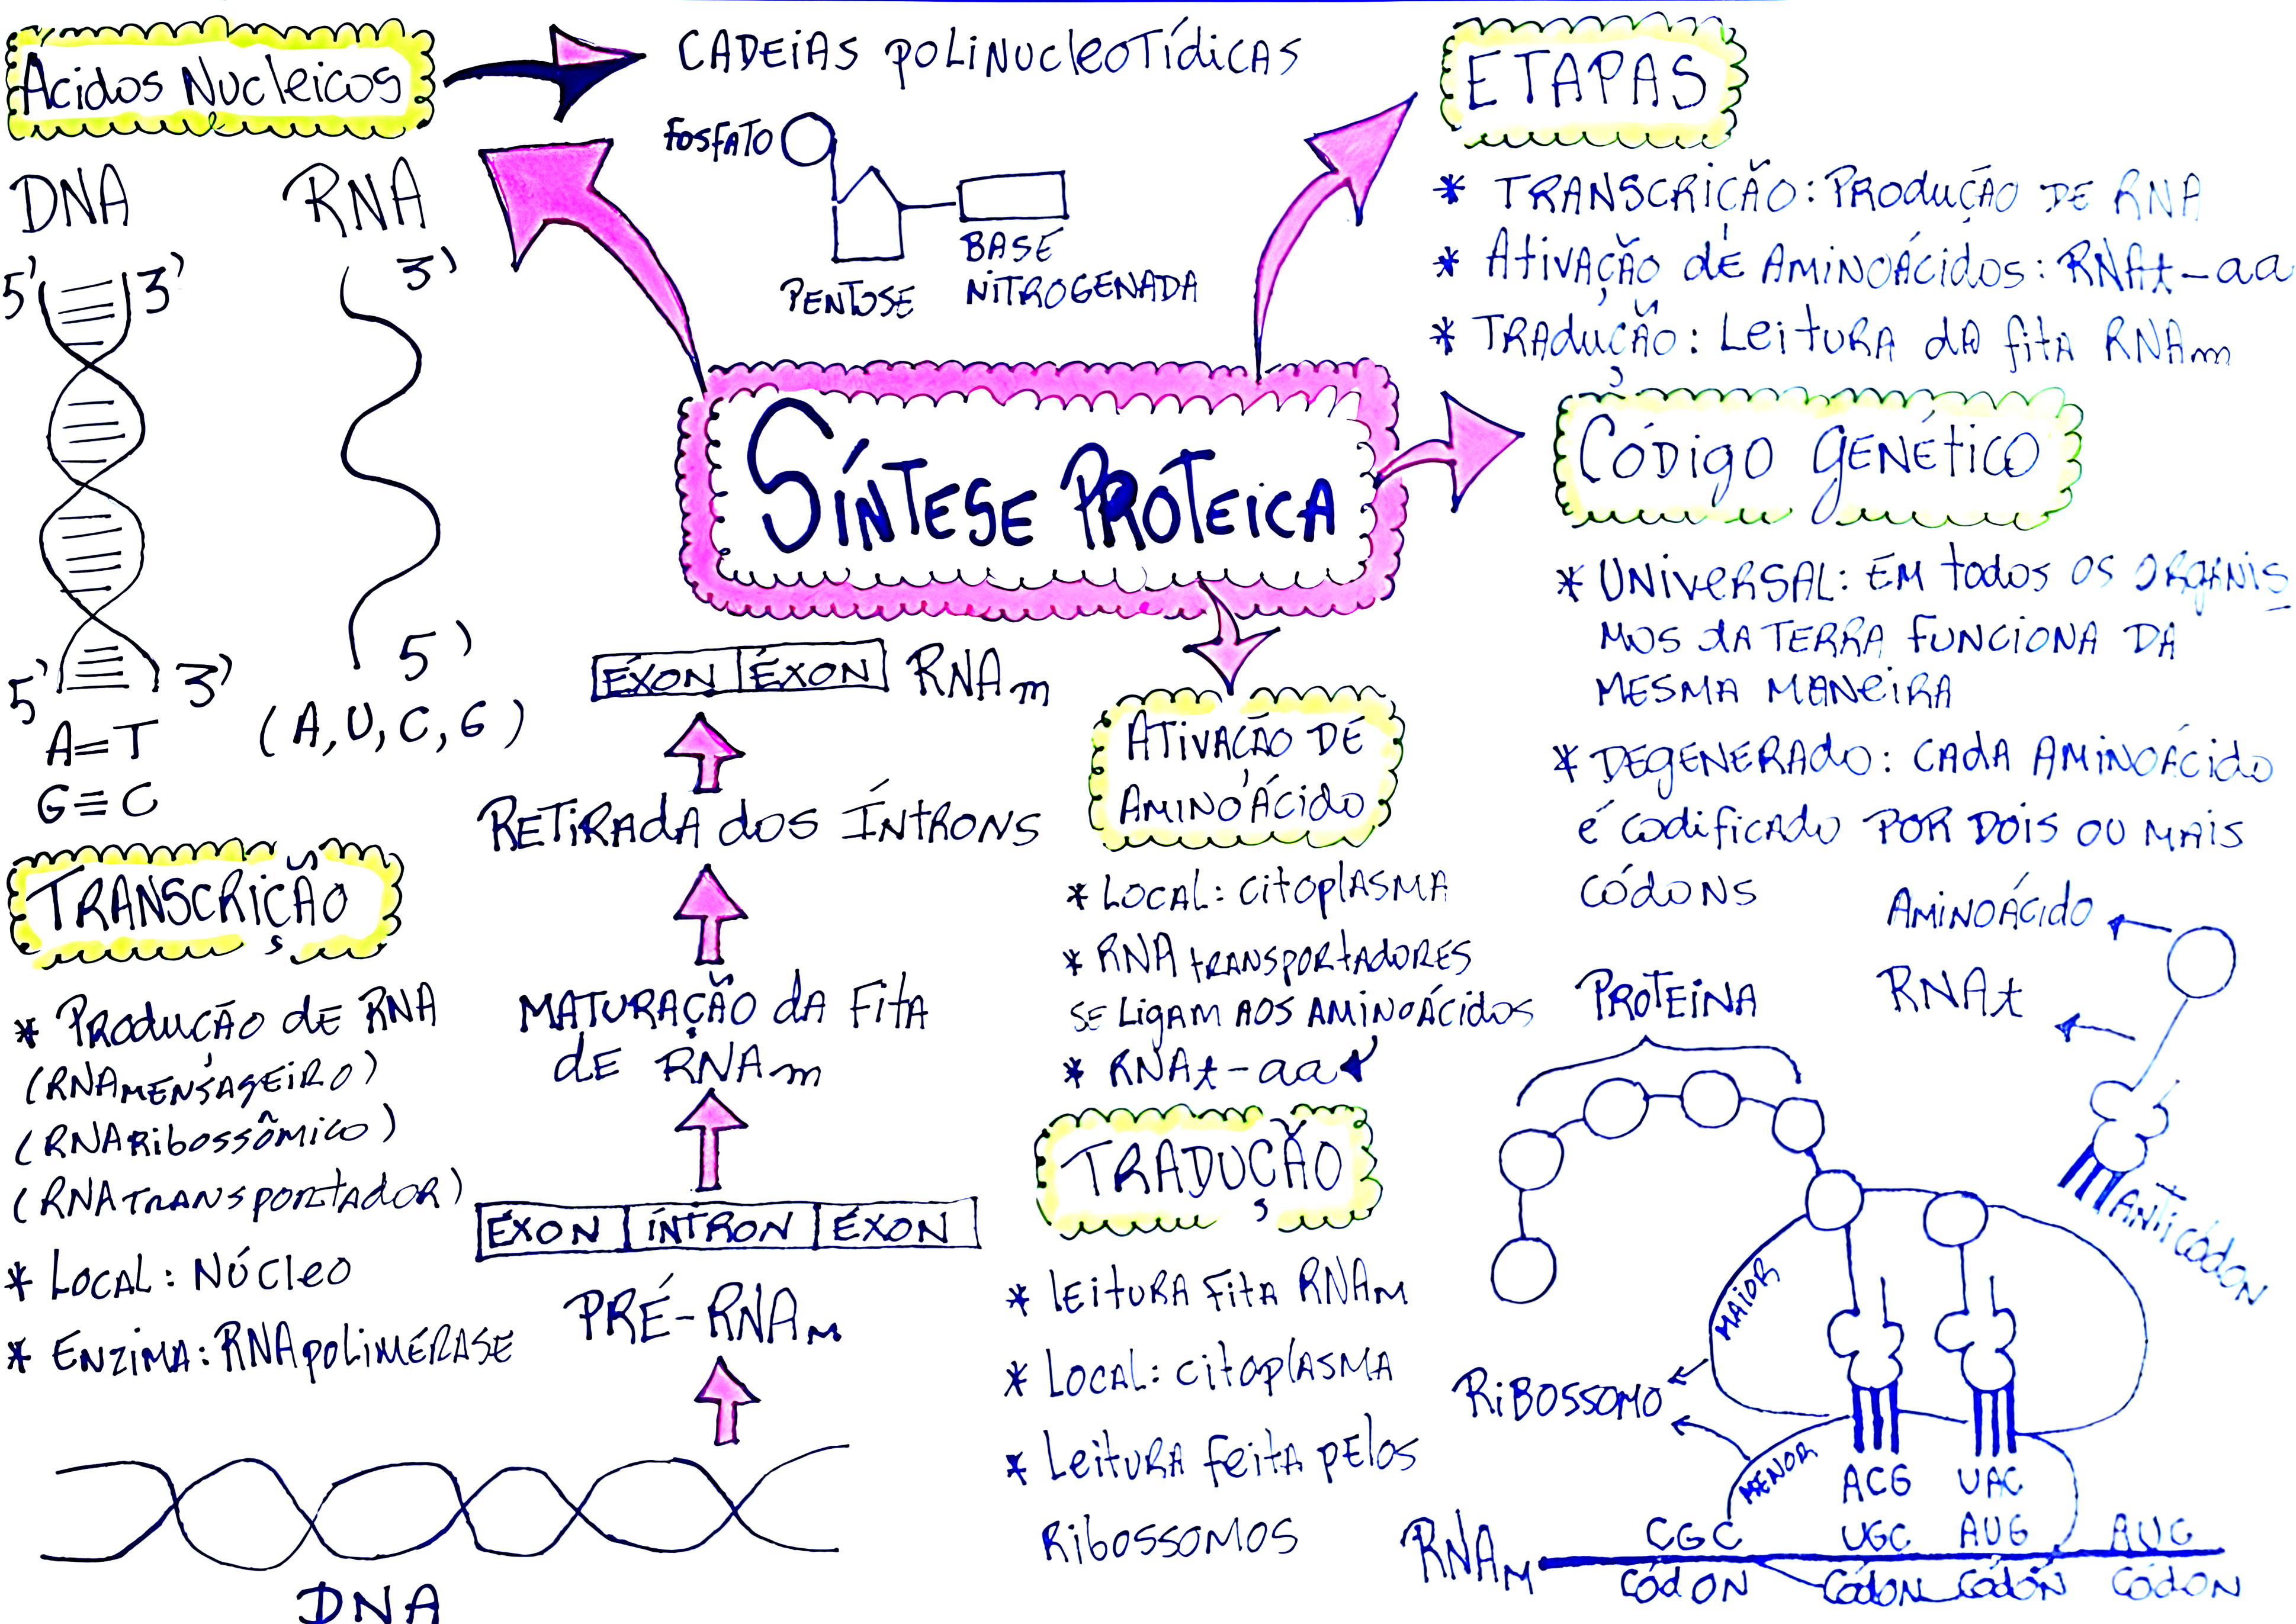 Ácidos Nucleicos
CADEIAS POLINUCLEOTÍDICAS
FOSFATO
PENTOSE
BASE
NITROGENADA
DNA
RNA
5' 3'
3'
5' 3'
5'
A=T
G≡C
(A, U, C, G)
ETAPAS
* TRANSCRIÇÃO: PRODUÇÃO DE RNA
* ATIVAÇÃO DE AMINOÁCIDOS: RNAt-aa
* TRADUÇÃO: LEITURA DA FITA RNAm
SÍNTESE PROTEICA
CÓDIGO GENÉTICO
* UNIVERSAL: EM TODOS OS ORGANIS
MOS DA TERRA FUNCIONA DA
MESMA MANEIRA
* DEGENERADO: CADA AMINOÁCIDO
É CODIFICADO POR DOIS OU MAIS
CÓDONS
TRANSCRIÇÃO
* PRODUÇÃO DE RNA
(RNA MENSAGEIRO)
(RNA RIBOSSÔMICO)
(RNA TRANSPORTADOR)
* LOCAL: NÚCLEO
* ENZIMA: RNA POLIMÉRASE
ÉXON ÉXON RNAm
RETIRADA DOS ÍNTRONS
MATURAÇÃO DA FITA
DE RNAm
ÉXON ÍNTRON ÉXON
PRÉ-RNAm
DNA
ATIVAÇÃO DE
AMINOÁCIDO
* LOCAL: CITOPLASMA
* RNA TRANSPORTADORES
SE LIGAM AOS AMINOÁCIDOS
* RNAt-aa
TRADUÇÃO
* LEITURA FITA RNAm
* LOCAL: CITOPLASMA
* LEITURA FEITA PELOS
RIBOSSOMOS
AMINOÁCIDO
RNAt
ANTICÓDON
PROTEINA
MAIOR
RIBOSSOMO
MENOR
ACG UAC
RNAm CGC UGC AUG AUG
CÓDON CÓDON CÓDON CÓDON